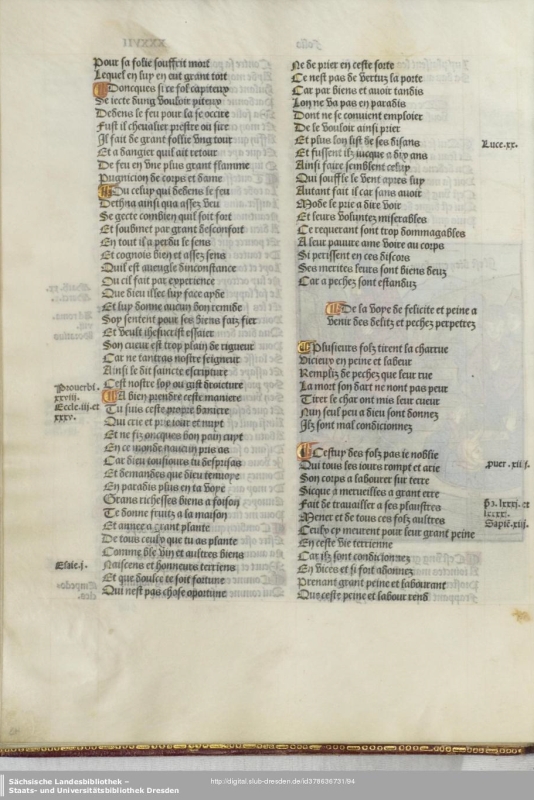 Pour sa folie souffrit mort
Lequel en luy en eut grant tort
Doncques si ce fol capiteux
Se iecte dung vouloir piteux
Dedens le feu pour la se occire
Fust il cheualier prestre ou sire
Il fait de grant follie vng tour
Et a dangier quil ait retour
De feu en vne plus grant flamme
Pugnicion de corps et dame
Ou celuy qui dedens le feu
Se gecte combien quil soit fort
Et soubient par grant desconfort
En tout il a perdu le sens
Et cognois bien et assez sens
Quil est aueugle dinconstance
Ou cil fait par experience
Que dieu illec luy face ayde
Et luy donne aucun bon remide
Soy sentent pour ses biens fatz fier
Et veult ihesucrist essaier
Son cueur est trop plain de rigueur
Car ne tantras nostre seigneur
Ainsi le dit saincte escripture
Cest nostre loy ou gist droicture
A bien prendre ceste maniere
Tu suis ceste propre baniere
Qui crie et prie iour et nuyt
Et ne fiz oncques bon pain cuyt
En ce monde naucun pris as
Car dieu tousiours tu desprisas
Et demandes que dieu tenuoye
En paradis plus en ta voye
Grans richesses biens a foison
Te donne fruitz a la maison
Et annee a grant plante
De tous ceulx que tu as plante
Comme ble vin et aultres biens
Naiscens et honneurs terriens
Et que doulce te soit fortune
Qui nest pas chose oportune
Prouerbi.
xxviii.
Eccle.iij.et
xxxv.
Esaie.j.
Ne de prier en ceste sorte
Ce nest pas de vertuz la porte
Car par biens et auoir tandis
Lon ne va pas en paradis
Dont ne se conuient emploier
De le vouloir ainsi prier
Et plus lon list de ses disans
Et fussent ilz iucque a dix ans
Ainsi faire semblent celuy
Qui souffle le vent apres luy
Autant fait il car sans auoir
Mode le prie a dire voir
Et leurs voluntez miserables
Ce requerant sont trop dommagables
A leur pauure ame voire au corps
Si perissent en ces discors
Ses merites leurs sont biens deuz
Car a pechez sont estanduz
De la voye de felicite et peine a
venir des delitz et pechez perpetrez
Plusieurs folz tirent la charrue
Vicieux en peine et labeur
Rempliz de pechez que leur rue
La mort son dart ne nont pas peur
Tirer le char ont mis leur cueur
Nun seul peu a dieu sont donnez
Ilz sont mal condicionnez
Cestuy des folz pas ie noblie
Qui tous les iours rompt et arie
Son corps a labourer sur terre
Sicque a merueilles a grant erre
Fait de trauailler a ses plaustres
Mener et de tous ces folz aultres
Ceulx cy meurent pour leur grant peine
En ceste vie terrienne
Car ilz sont condicionnez
En vices et si font abonnez
Prenant grant peine et labourant
Que ceste peine et labour rend
Luce.xx.
puer.xii.
ps.lxxxj.et
Sapie.xiij.
Sächsische Landesbibliothek –
Staats- und Universitätsbibliothek Dresden
http://digital.slub-dresden.de/id378636731/94